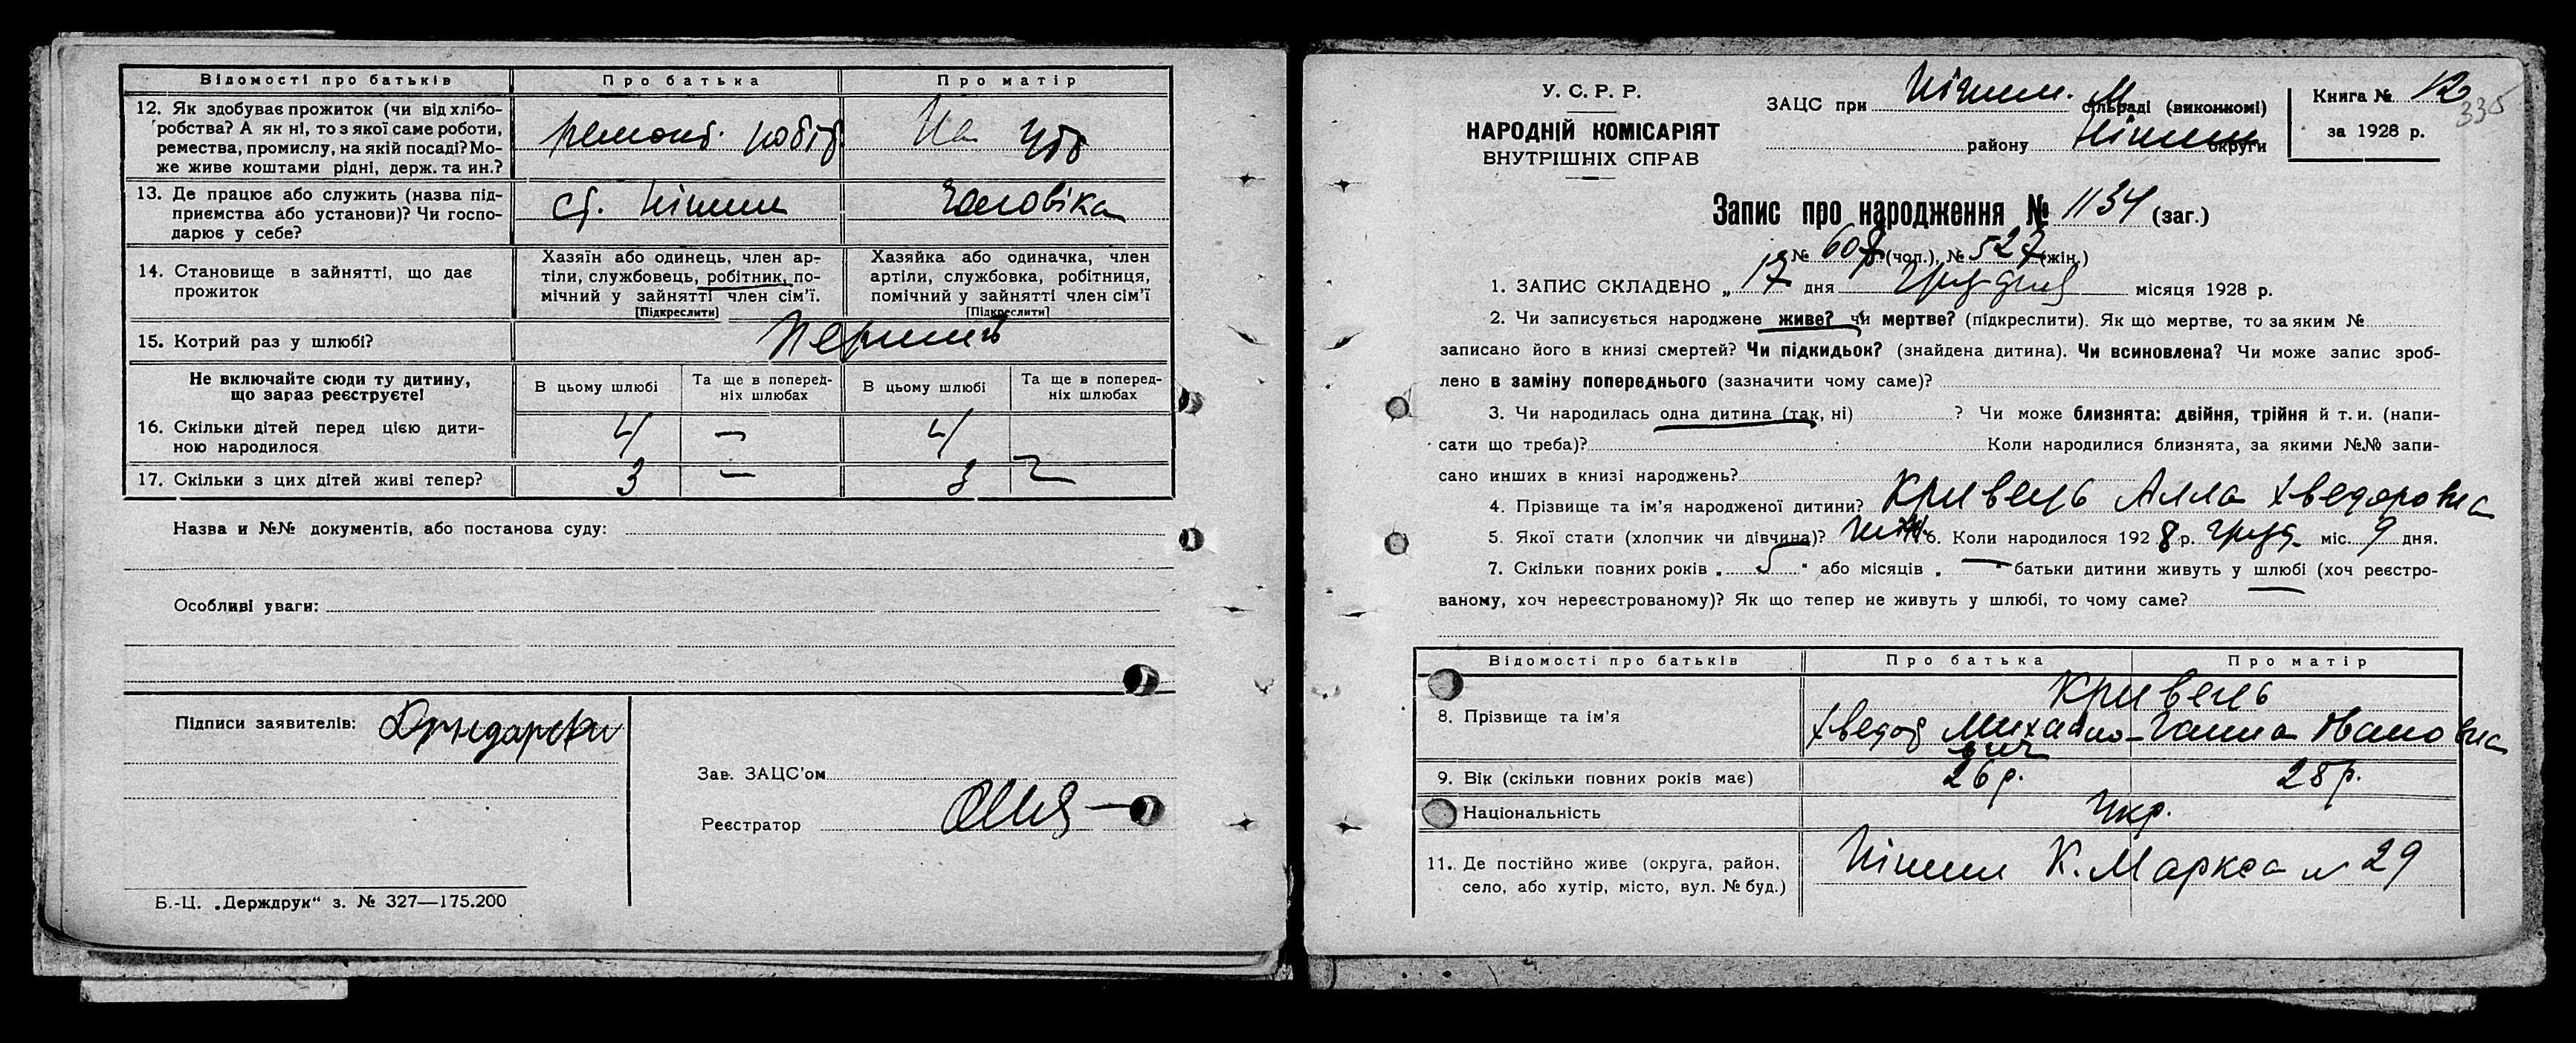 Відомості про батьків Про батька Про матір
12. Як здобуває прожиток (чи від хлібо-
робства? А як ні, то з якої саме роботи,
ремества, промислу, на якій посаді? Мо-
же живе коштами рідні, держ. та ин.?
ремонт. робіт. На утр
13. Де працює або служить (назва під-
приємства або установи)? Чи госпо-
дарює у себе?
ст. Ніжин чоловіка
14. Становище в зайнятті, що дає
прожиток
Хазяїн або одинець, член ар-
тіли, службовець, робітник, по-
мічний у зайнятті член сім'ї.
[Підкреслити]
Хазяйка або одиначка, член
артіли, службовка, робітниця,
помічний у зайнятті член сім'ї
[Підкреслити]
15. Котрий раз у шлюбі? Перший
Не включайте сюди ту дитину,
що зараз реєструєте!
В цьому шлюбі Та ще в поперед-
ніх шлюбах В цьому шлюбі Та ще в поперед-
ніх шлюбах
16. Скільки дітей перед цією дити-
ною народилося 4 — 4
17. Скільки з цих дітей живі тепер? 3 — 3
Назва и №№ документів, або постанова суду:
Особливі уваги:
Підписи заявителів:
Зав. ЗАЦС'ом
Реєстратор
Б.-Ц. „Держдрук“ з. № 327—175.200
У. С. Р. Р.
НАРОДНІЙ КОМІСАРІЯТ
ВНУТРІШНІХ СПРАВ
ЗАЦС при Ніжин. М сільраді (виконкомі)
району Ніжин округи
Книга № 12
за 1928 р.
335
Запис про народження № 1134 (заг.)
№ 608 (чол.), № 527 (жін.)
1. ЗАПИС СКЛАДЕНО „ 17 дня Грудня місяця 1928 р.
2. Чи записується народжене живе? чи мертве? (підкреслити). Як що мертве, то за яким №
записано його в книзі смертей? Чи підкидьок? (знайдена дитина). Чи всиновлена? Чи може запис зроб-
лено в заміну попереднього (зазначити чому саме)?
3. Чи народилась одна дитина (так, ні) ? Чи може близнята: двійня, трійня й т. и. (напи-
сати що треба)? Коли народилися близнята, за якими №№ запи-
сано инших в книзі народжень?
4. Прізвище та ім'я народженої дитини? Кривець Алла Хведоровна
5. Якої стати (хлопчик чи дівчина)? 6. Коли народилося 1928 р. груд. міс. 9 дня.
7. Скільки повних років „ 5 “ або місяців „ — “ батьки дитини живуть у шлюбі (хоч реєстро-
ваному, хоч нереєстрованому)? Як що тепер не живуть у шлюбі, то чому саме?
Відомості про батьків Про батька Про матір
Кривець
8. Прізвище та ім'я Хведор Михайло- Ганна Івановна
вич
9. Вік (скільки повних років має) 26 р. 28 р.
Національність Укр.
11. Де постійно живе (округа, район,
село, або хутір, місто, вул. № буд.)
Ніжин К. Маркса № 29